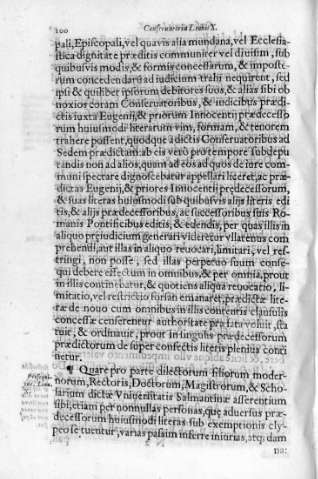 100 Conseruatoria Leonis X.
pali, Episcopali, vel quauis alia mundana, vel Ecclesia-
stica dignitate præditis communiter vel diuisim, sub
quibusuis modis, & formis concessarum, & imposte-
rum concedendarū ad iudicium trahi nequirent, sed
ipsi & quilibet ipsorum debitores suos, & alias sibi ob
noxios coram Conseruatoribus, & iudicibus prædi-
ctis iuxta Eugenij, & priorum Innocentij prædecesso
rum huiusmodi literarum vim, formam, & tenorem
trahere possent, quodque a dictis Conseruatoribus ad
Sedem prædictam ab eis vero pro tempore subdepu
tandis non ad alios, quam ad eos ad quos de iure com-
muni spectare dignoscebatur appellari liceret, ac præ-
dictas Eugenij, & priores Innocentij prędecessorum,
& suas literas huiusmodi sub quibusuis alijs literis edi
tis, & alijs prædecessoribus, ac successoribus suis Ro-
manis Pontificibus editis, & edendis, per quas illis in
aliquo præiudicium generari videretur vllatenus com
prehendi, aut illas in aliquo reuocari, limitari, vel res-
tringi, non posse, sed illas perpetuo suum conse-
qui debere effectum in omnibus, & per omnia, prout
in illis continebatur, & quotiens aliqua reuocatio, li-
mitatio, vel restrictio fursan emanaret, prædictæ lite-
ræ de nouo cum omnibus in illis contentis clausulis
concessæ censerentur authoritate præfata voluit, sta
tuit, & ordinauit, prout in singulis prædecessorum
prædictorum de super confectis literis plenius conti
netur.
¶ Quare pro parte dilectorum filiorum moder-
norum, Rectoris, Doctorum, Magistrorum, & Scho-
larium dictæ Vniuersitatis Salmantinæ asserentium
sibi, etiam per nonnullas personas, quę aduersus præ-
decessorum huiusmodi literas sub exemptionis cly-
peo se tuentur, varias passim inferre iniurias, atq; dam
na: